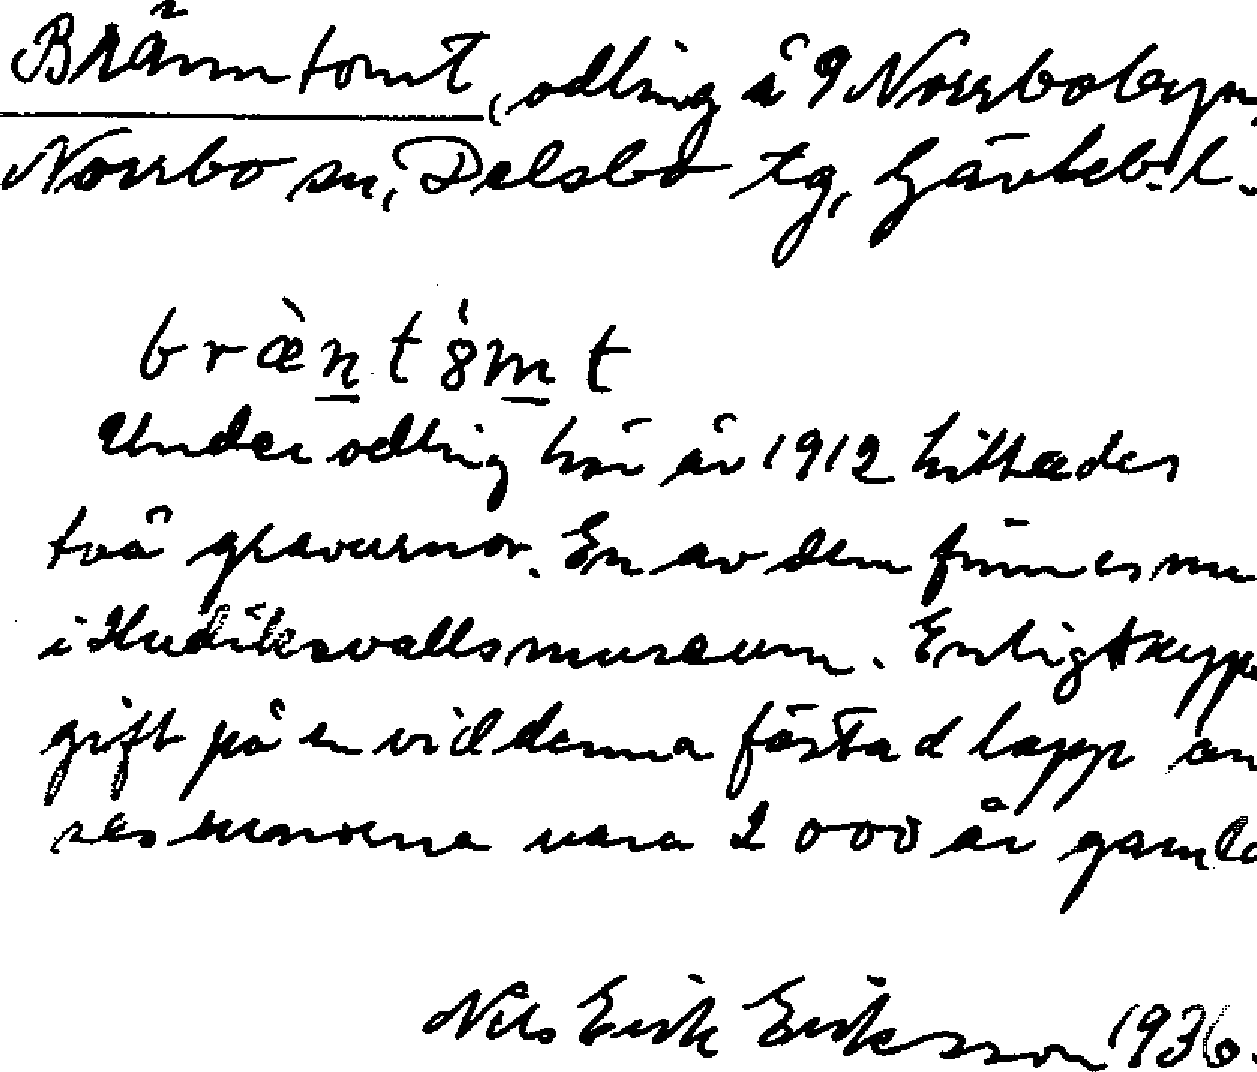 Bränntomt, odling å 9 Norrbobyn,
Norrbo sn, Delsbo tg, Gävleb. l.
bræ̀nt8́mt
Under odling här år 1912 hittades
två gravurnor. En av dem finnes nu
i Hudiksvalls museum. Enligt upp
gift på en vid denna fästad lapp an
ses urnorna vara 2000 år gamla
Nils Erik Eriksson 1936.